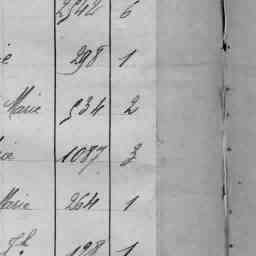 2542 6
ie 298 1
Marie 534 2
rie 1087 3
Marie 264 1
Jh 128 1